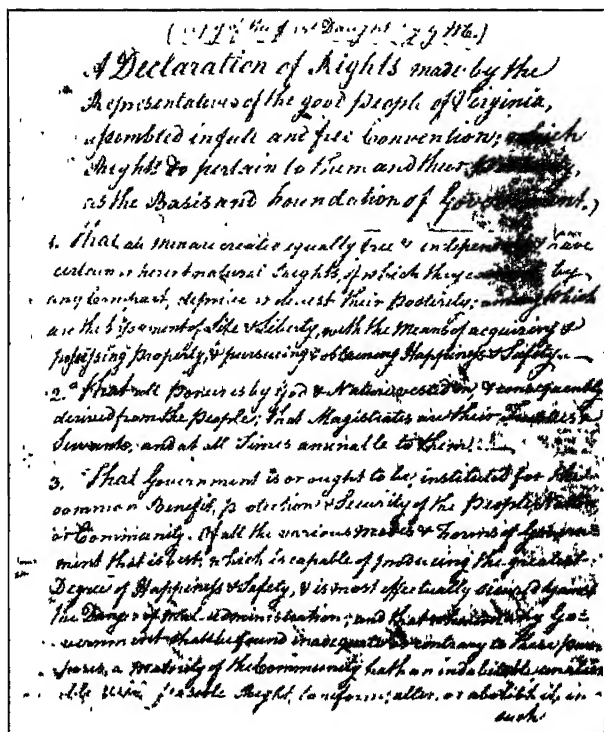 A Declaration of Rights made by the
Representatives of the good People of Virginia,
assembled in full and free Convention; which
Rights do pertain to them and their
as the Basis and Foundation of Government.)
1. That all Men are created equally free & independent & have
certain inherent natural Rights of which they cannot by
any Compact, deprive or devest their Posterity; among which
are the Enjoyment of Life & Liberty, with the Means of acquiring &
possessing Property, & pursueing & obtaining Happiness & Safety.
2.d That all Power is by God & Nature vested in, & consequently
derived from the People; that Magistrates are their Trustees &
Servants, and at all Times amenable to them.
3. That Government is or ought to be, instituted for the
common Benefit, Protection & Security of the People, Nation
or Community. Of all the various Modes & Forms of Govern
ment that is best, which is capable of producing the greatest
Degree of Happiness & Safety, & is most effectually secured against
the Danger of mal-administration; and that whenever any Go
vernment shall be found inadequate or contrary to these pur
poses, a Majority of the Community hath an indubitable
Right to reform, alter, or abolish it, in
such